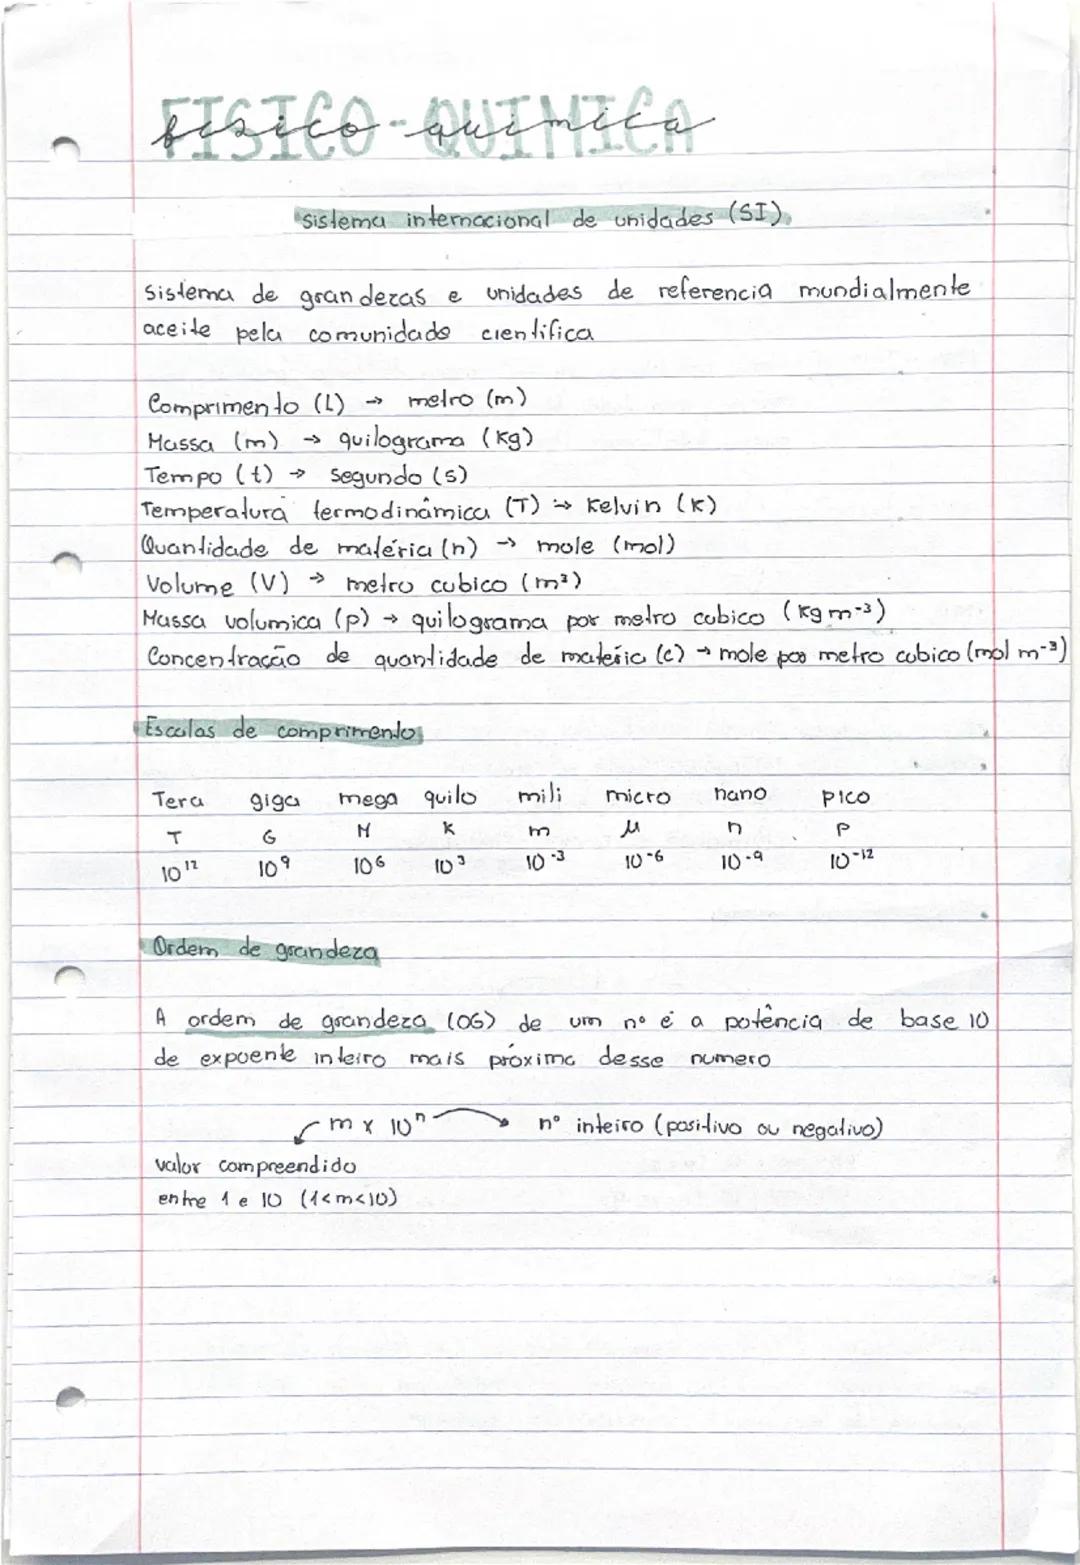 FISICO-QUIMICA
fisico-quimica
sistema internacional de unidades (SI)
sistema de grandezas e unidades de referencia mundialmente
aceite pela comunidade cientifica
Comprimento (L) → metro (m)
Massa (m) → quilograma (kg)
Tempo (t) → segundo (s)
Temperatura termodinâmica (T) → Kelvin (K)
Quantidade de matéria (n) → mole (mol)
Volume (V) → metro cubico (m³)
Massa volumica (ρ) → quilograma por metro cubico (kg m⁻³)
Concentração de quantidade de matéria (c) → mole por metro cubico (mol m⁻³)
Escalas de comprimento
Tera giga mega quilo mili micro nano pico
T G M K m µ n p
10¹² 10⁹ 10⁶ 10³ 10⁻³ 10⁻⁶ 10⁻⁹ 10⁻¹²
Ordem de grandeza
A ordem de grandeza (OG) de um nº é a potência de base 10
de expoente inteiro mais próxima desse numero
m x 10ⁿ nº inteiro (positivo ou negativo)
valor compreendido
entre 1 e 10 (1<m<10)